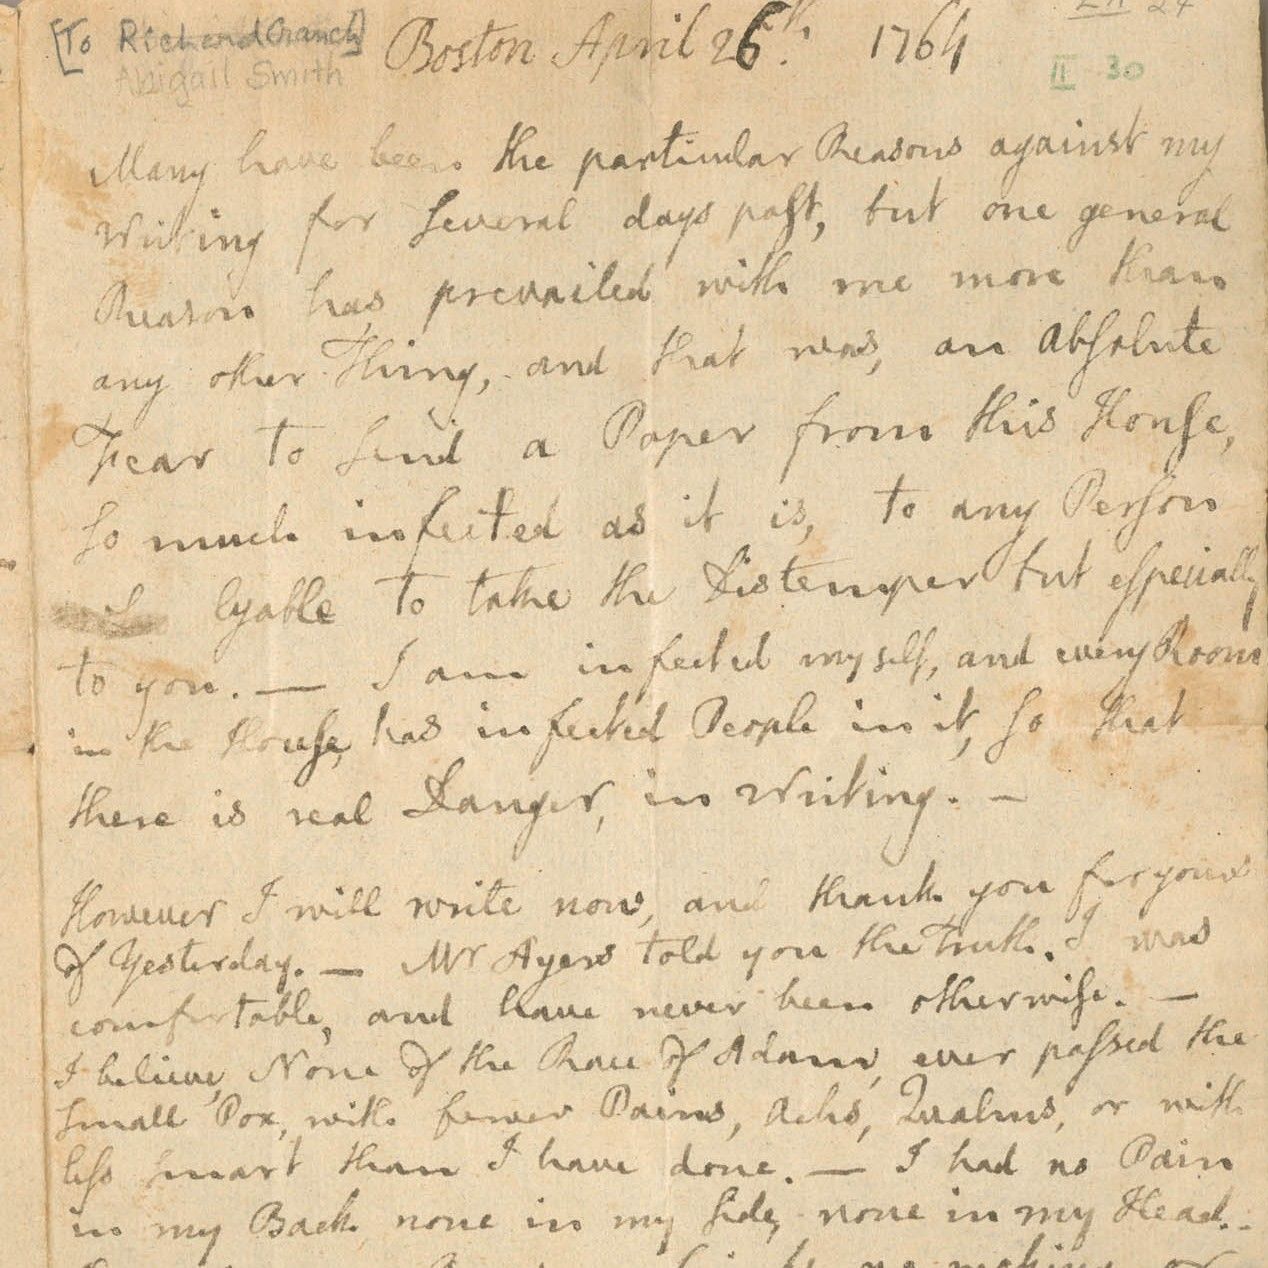 [To Richard Cranch]
Abigail Smith
Boston April 26th. 1764
II 30
Many have been the particular Reasons against my
Writing for several days past, but one general
Reason has prevailed with me more than
any other Thing, and that was, an absolute
Fear to send a Paper from this House,
so much infected as it is, to any Person
lyable to take the Distemper but especially
to you. — I am infected myself, and every Room
in the House, has infected People in it, so that
there is real Danger, in Writing. —
However I will write now, and thank you for yours
of Yesterday. — Mr Ayers told you the Truth. I was
comfortable, and have never been otherwise. —
I believe, None of the Race of Adam, ever passed the
small Pox, with fewer Pains, Achs, Qualms, or with
less smart than I have done. — I had no Pain
in my Back none in my side, none in my Head.